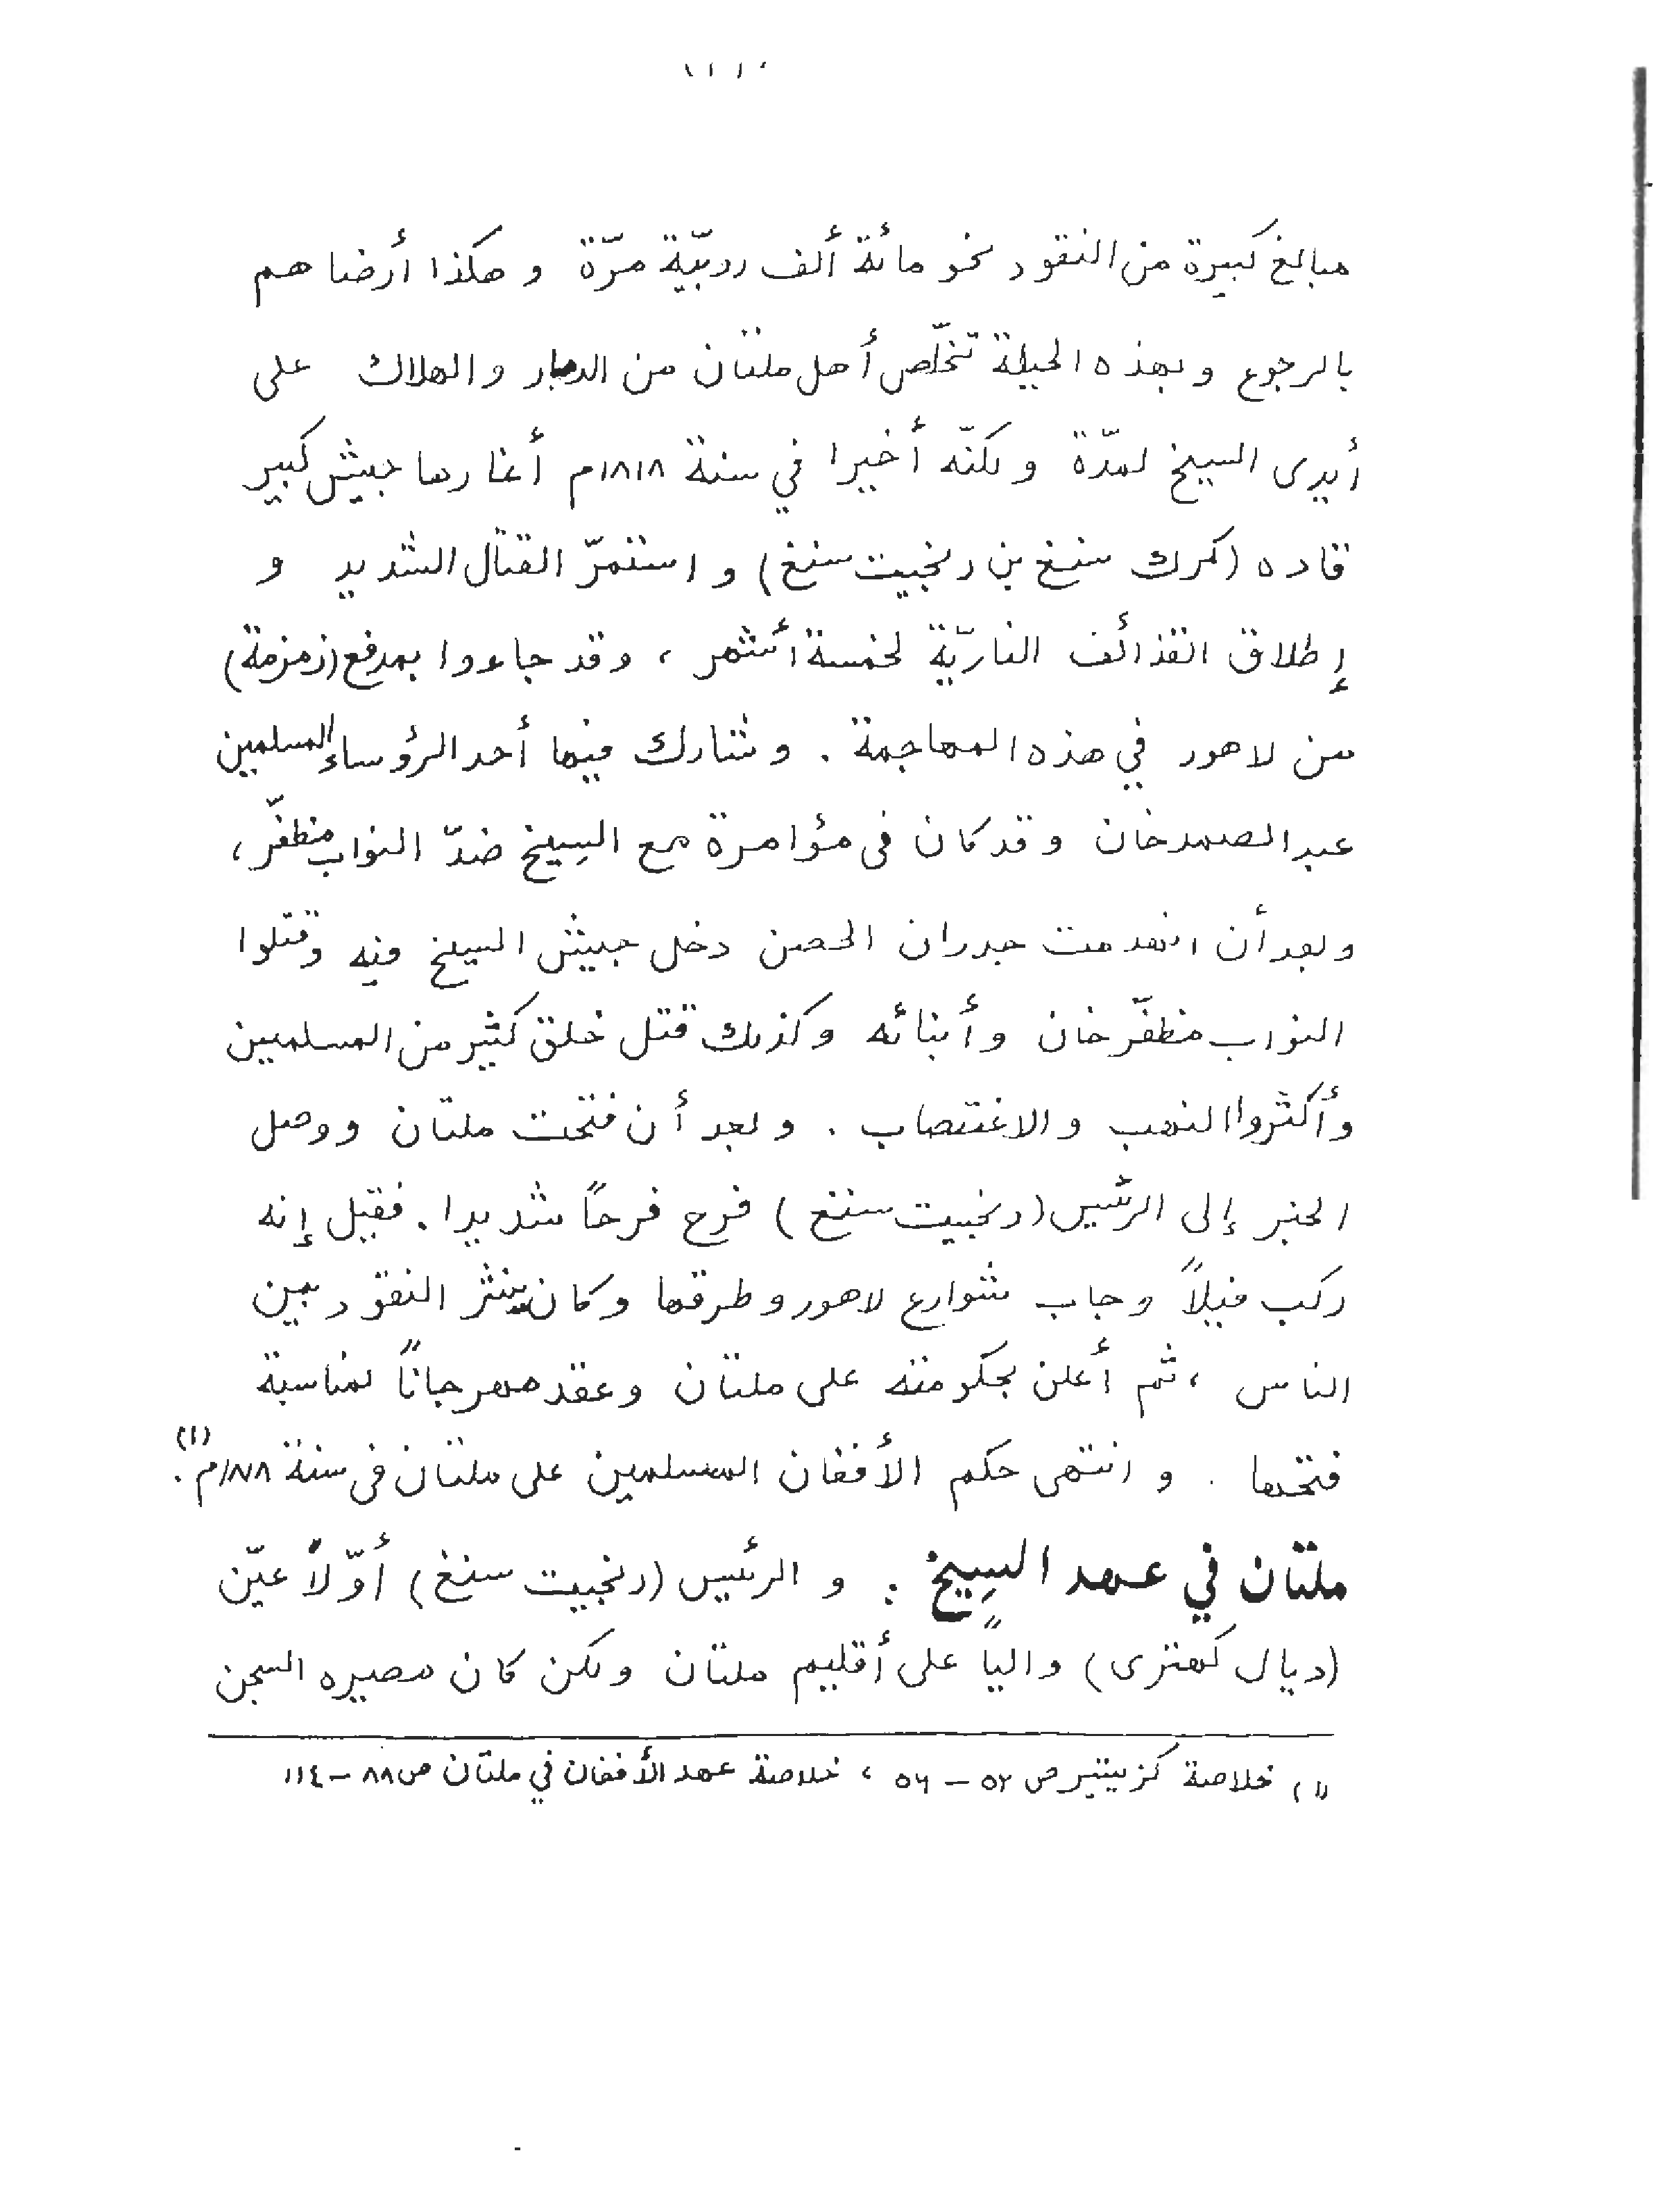 مبالغ كبيرة من النقود نحو مائة ألف روبيّة مرّة و هكذا أرضاهم
بالرجوع وبهذه الحيلة تخلّص أهل ملتان من الدمار والهلاك على
أيدى السيخ لمدّة ولكنّه أخيرا في سنة ١٨١٨م أغارها جيش كبير
قاده (كمرك سنغ بن رنجيت سنغ) و استمرّ القتال الشديد و
إطلاق القذائف الناريّة لخمسة أشهر ، وقد جاءوا بمدفع (زمزمة)
من لاهور في هذه المهاجمة . وشارك فيها أحد الرؤساء المسلمين
عبد الصمد خان وقد كان فى مؤامرة مع السِيخ ضدّ النواب مظفّر ،
وبعد أن انهدمت جدران الحصن دخل جيش السيخ فيه وقتلوا
النواب مظفّر خان وأبنائه وكذلك قتل خلق كثير من المسلمين
وأكثروا النهب والاغتصاب . وبعد أن فتحت ملتان ووصل
الخبر إلى الرئيس (رنجيت سنغ) فرح فرحاً شديدا . فقيل إنه
ركب فيلاً وجاب شوارع لاهور وطرقها وكان ينثر النقود بين
الناس ، ثم أعلن بحكومته على ملتان وعقد مهرجاناً لمناسبة
فتحها . و انتهى حكم الأفغان المسلمين على ملتان فى سنة ١٨١٨م (١) .
ملتان في عهد السِيخ : و الرئيس (رنجيت سنغ) أوّلاً عيّن
(ديال كهترى) والياً على أقليم ملتان ولكن كان مصيره السجن
(١) خلاصة كزيتير ص ٥٢ - ٥٦ ، خلاصة عهد الأفغان في ملتان ص ٨٨ - ١١٤